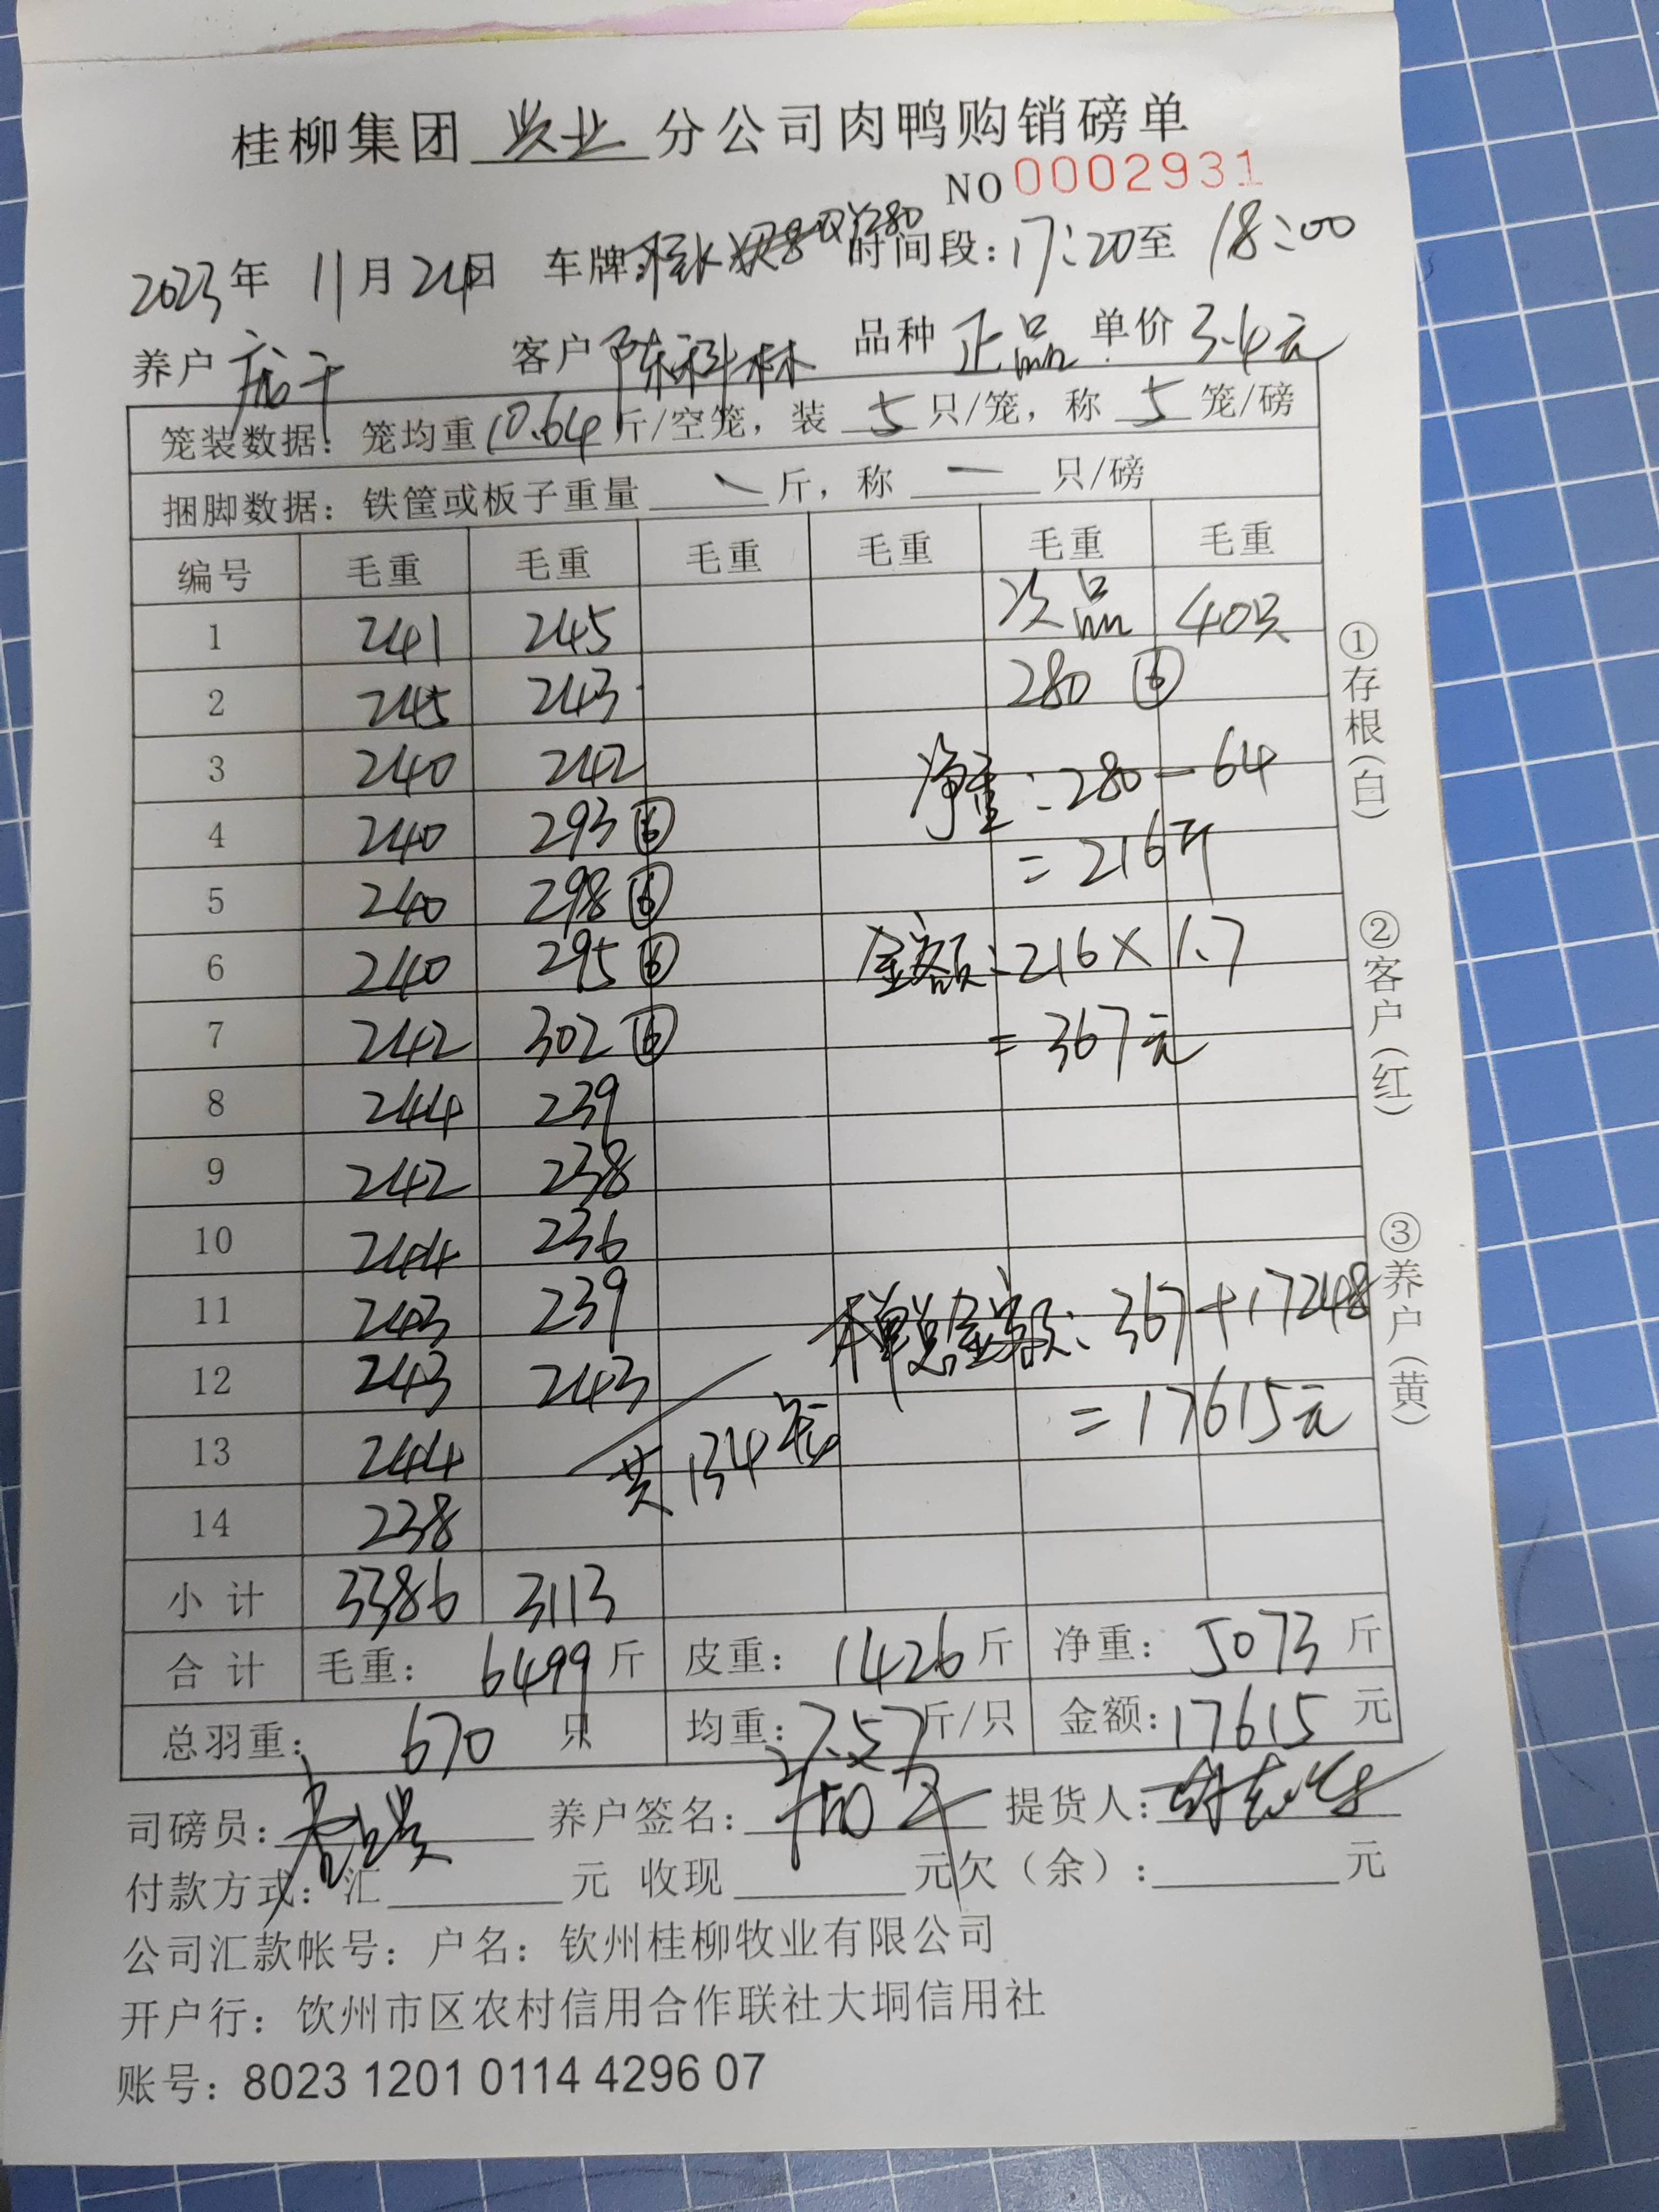 桂柳集团 兴业 分公司肉鸭购销磅单
NO 0002931
2023年 11月24日 车牌: 时间段:17:20至 18:00
养户 客户 陈科林 品种 正品 单价 3.4元
笼装数据: 笼均重10.64斤/空笼, 装 5 只/笼, 称 5 笼/磅
捆脚数据: 铁筐或板子重量 斤, 称 一 只/磅
编号 毛重 毛重 毛重 毛重 毛重 毛重
1 241 245 次品 40只
2 245 243 280 ⑥
3 240 242 净重:280-64
4 240 293⑥ =216斤
5 240 298⑥
6 240 295⑥ 金额:216×1.7
7 242 302⑥ =367元
8 244 239
9 242 238
10 244 236
11 243 239 本单总金额:367+17248
12 243 243 =17615元
13 244 共134笼
14 238
小计 3386 3113
合计 毛重: 6499斤 皮重: 1426斤 净重: 5073斤
总羽重: 670 只 均重:7.57斤/只 金额:17615 元
司磅员: 养户签名: 提货人:
付款方式: 汇 元 收现 元欠(余): 元
公司汇款帐号: 户名: 钦州桂柳牧业有限公司
开户行: 钦州市区农村信用合作联社大垌信用社
账号: 8023 1201 0114 4296 07
①存根(白)
②客户(红)
③养户(黄)